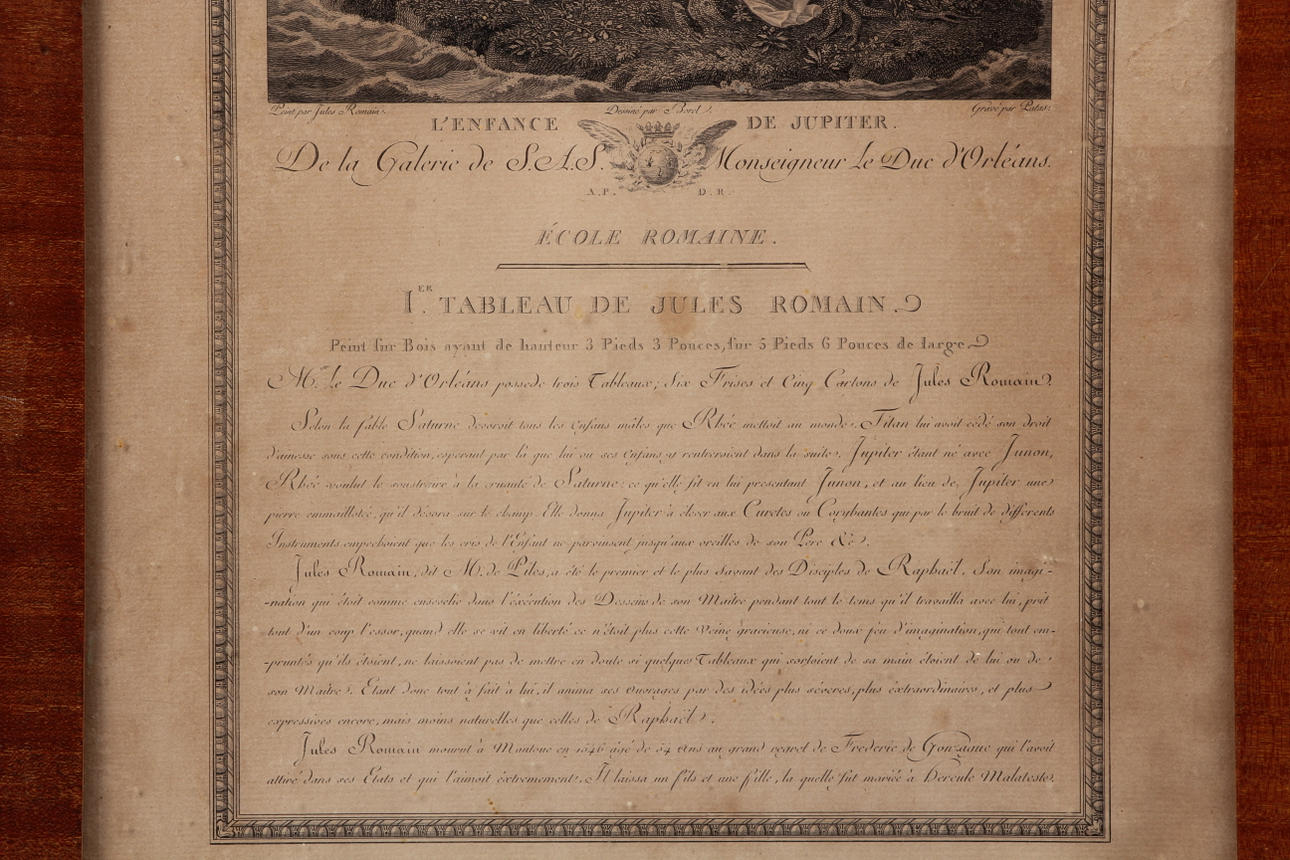 Peint par Jules Romain. Dessiné par Borel. Gravé par Patas.
L'ENFANCE DE JUPITER.
De la Galerie de S.A.S. Monseigneur Le Duc d'Orléans.
A.P. D.R.
ÉCOLE ROMAINE.
I.ER TABLEAU DE JULES ROMAIN.
Peint sur Bois ayant de hauteur 3 Pieds 3 Pouces, sur 5 Pieds 6 Pouces de large
M. le Duc d'Orléans possede trois Tableaux, Six Frises et Cinq Cartons de Jules Romain.
Selon la fable Saturne devoroit tous les Enfans mâles que Rhée mettoit au monde. Titan lui avoit cédé son droit
d'ainesse sous cette condition, esperant par là que lui ou ses Enfans y rentreroient dans la suite. Jupiter étant né avec Junon,
Rhée voulut le soustraire à la cruauté de Saturne: ce qu'elle fit en lui presentant Junon, et au lieu de Jupiter une
pierre emmaillotée, qu'il dévora sur le champ. Elle donna Jupiter à élever aux Curetes ou Corybantes qui par le bruit de differents
Instruments empechoient que les cris de l'Enfant ne parvinsent jusqu'aux oreilles de son Pere &c.
Jules Romain, dit M. de Piles, a été le premier et le plus savant des Disciples de Raphaël. Son imagi-
-nation qui étoit comme ensevelie dans l'éxécution des Desseins de son Maitre pendant tout le tems qu'il travailla avec lui, prit
tout d'un coup l'essor, quand elle se vit en liberté ce n'étoit plus cette Veine gracieuse, ni ce doux feu d'imagination, qui tout em-
-pruntés qu'ils étoient, ne laissoient pas de mettre en doute si quelques Tableaux qui sortoient de sa main étoient de lui ou de
son Maitre. Etant donc tout à fait à lui, il anima ses Ouvrages par des idées plus séveres, plus éxtraordinaires, et plus
expressives encore, mais moins naturelles que celles de Raphaël.
Jules Romain mourut à Mantoue en 1546 âgé de 54 Ans au grand regret de Frederic de Gonzague qui l'avoit
attiré dans ses Etats et qui l'aimoit éxtremement. Il laissa un fils et une fille, la quelle fut mariée à Hercule Malateste.